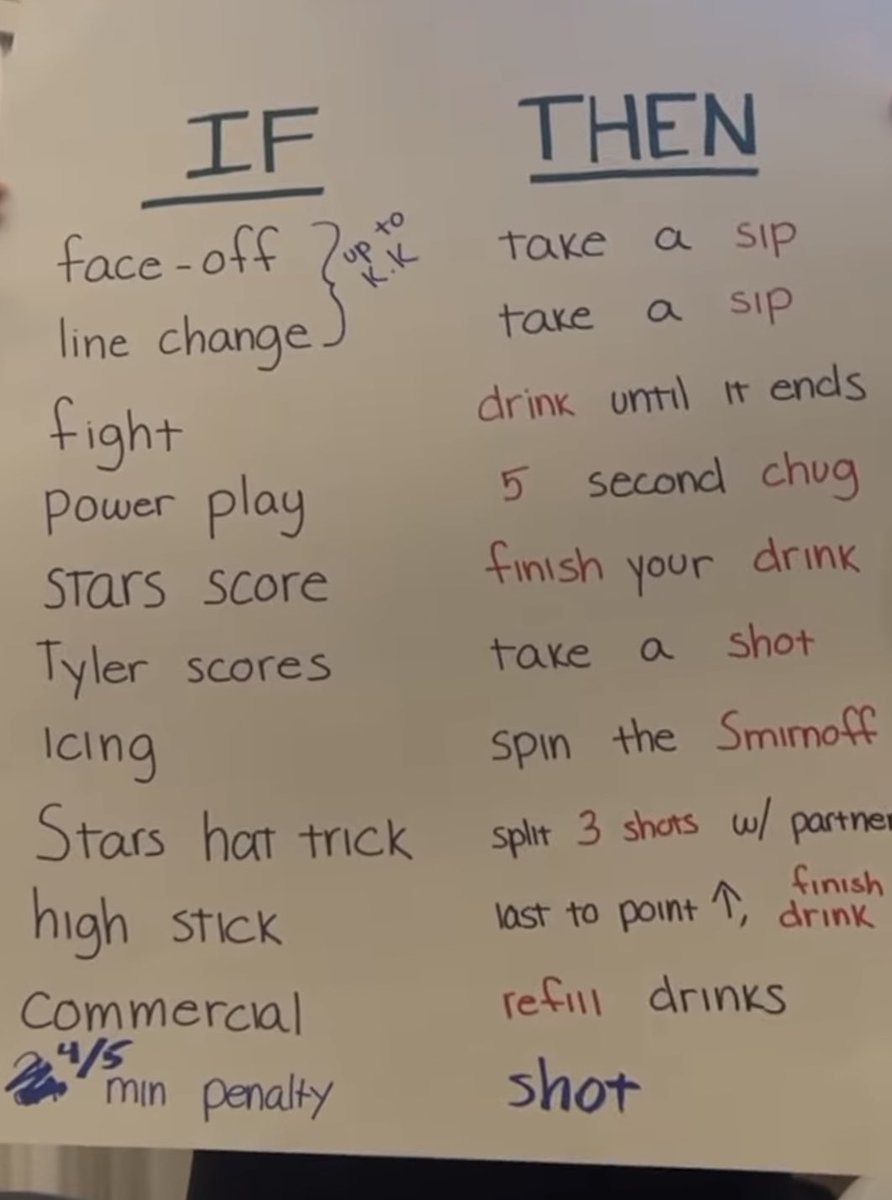 IF THEN
face-off } up to K.K take a sip
line change take a sip
fight drink until it ends
power play 5 second chug
Stars score finish your drink
Tyler scores take a shot
Icing spin the Smirnoff
Stars hat trick split 3 shots w/ partner
high stick last to point ↑, finish drink
Commercial refill drinks
4/5 min penalty shot